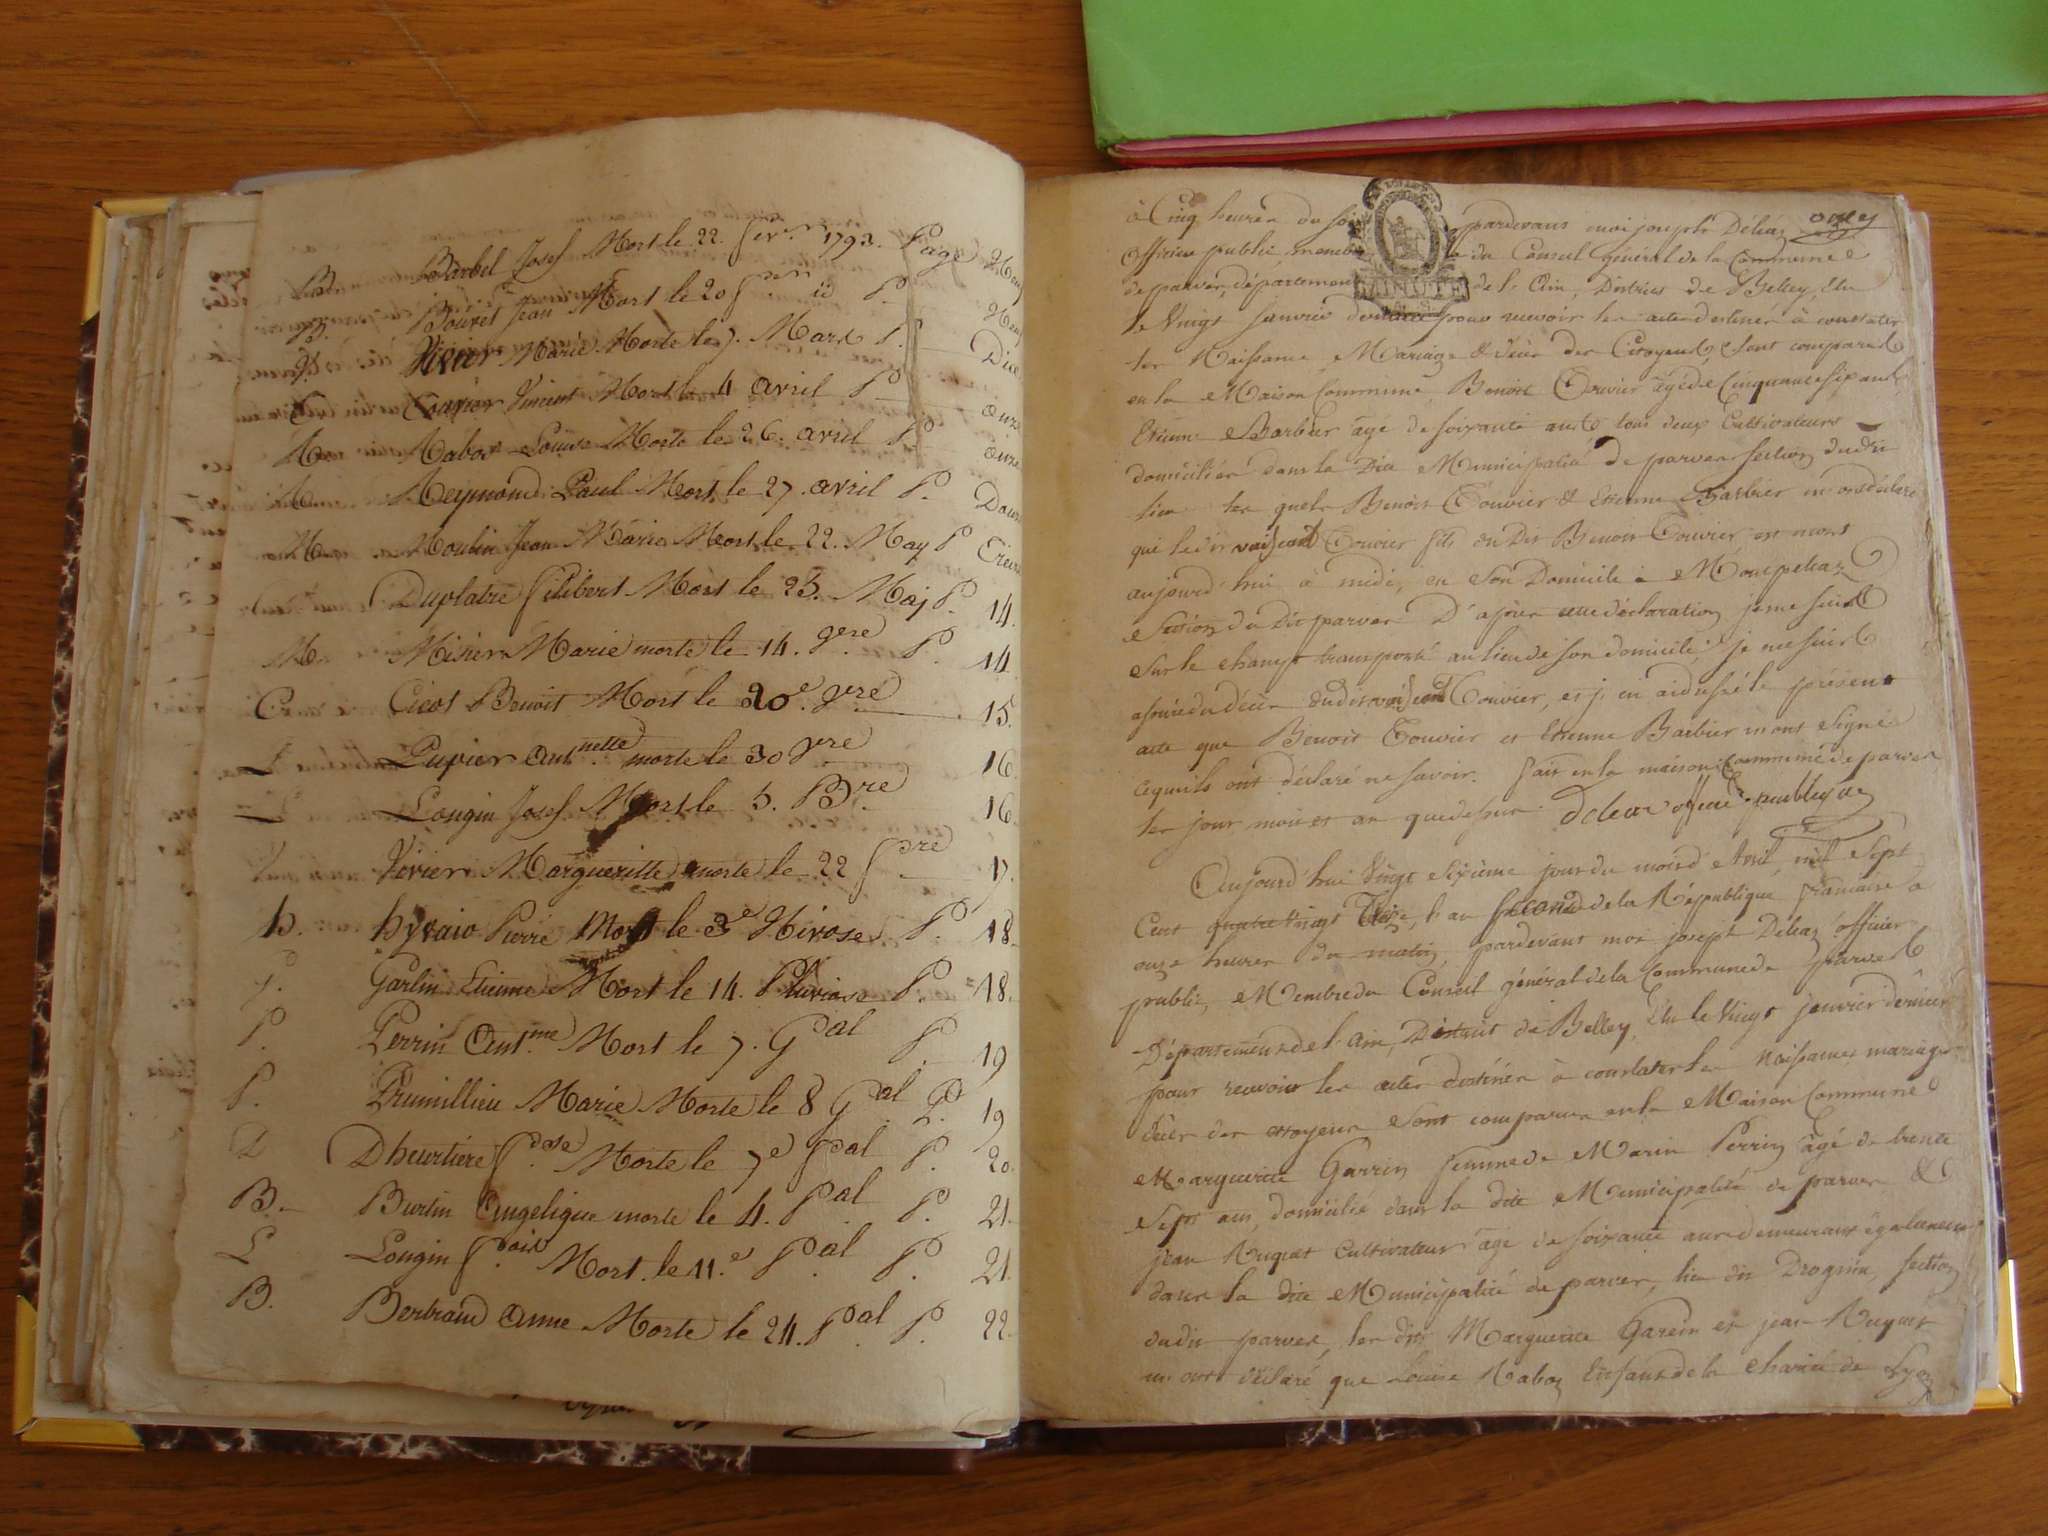 B. Barbel Josef Mort le 22. fevr. 1793. Page
B. Bouvet Jean Mort le 20 id P.
V. Vivier Marie Morte le 7. Mars P. Dix
C Couvier Vincent Mort le 4 avril P. onze
N. Nabos Louise Morte le 26. avril P. onze
N Neymond Paul Mort le 27. avril P. Douze
M Moulin Jean Marie Mort le 22. May P
Duplatre filibert Mort le 23. Maj P. 14.
M Misier Marie morte le 14. 9bre P. 14
C Cicot Benoit Mort le 20e. 14. 15.
L Lupier Antnette morte le 30 16.
L Longin Josef Mort le 5. Bre 16.
V Vivier Marguerite morte le 22 17.
h. hyvaio Pierre Mort le 3e Nivose P. 18.
g. Garlin Etienne Mort le 14. Pluviose P. 18.
P. Perrin Ant.me Mort le 7. Gal P 19
P. Prumillieu Marie Morte le 8 Gal P. 19
D Dheurtiere foise Morte le 7e fal P. 20.
B. Burtin Angelique morte le 4. fal P. 21.
L Longin f.ois Mort. le 11.e fal P. 21.
B. Bertrand Anne Morte le 24. fal P. 22.
onze
à Cinq heures du soir pardevant moi joseph Déléaz
officier public membre du Conseil général de la Commune
de parves, département de l'Ain, District de Belley, Elu
le Vingt janvier dernier pour recevoir les actes destinés à constater
les Naissance, Mariage & décès des Citoyens, sont comparus
en la Maison Commune, Benoit Couvier âgé de Cinquante six ans,
Etienne Barbier âgé de soixante ans tous deux Cultivateurs
domiciliés dans la Dite Municipalité de parves section dudit
lieu les quels Benoit Couvier & Etienne Barbier m'ont déclaré
que ledit vincent Couvier fils du Dit Benoit Couvier est mort
aujourd'hui à midi, en son Domicile à Montpelaz
Section du Dit parves D'après cette déclaration je me suis
sur le champ transporté au lieu de son domicile, je me suis
assuré du décès dudit vincent Couvier, et j'en ai dressé le présent
acte que Benoit Couvier et Etienne Barbier n'ont signé
ce qu'ils ont déclaré ne savoir. fait en la maison Commune de parves
les jour mois et an que dessus. Deleaz officié public
Aujourd'hui Vingt Sixième jour du mois d'Avril, mil Sept
Cent quatre vingt treize, l'an second de la République française à
onze heures du matin, pardevant moi joseph Déléaz officier
public, Membre du Conseil général de la Commune de parves
Département de l'Ain, District de Belley, Elu le Vingt janvier dernier
pour recevoir les actes destinés à constater les Naissances mariage
décès des citoyens sont comparus en la Maison Commune
Marguerite Garrin femme de Marin Perrin âgé de trente
Sept ans, domicilié dans la dite Municipalité de parves &
jean Nuguet Cultivateur âgé de soixante ans demeurant également
dans la dite Municipalité de parves, lieu dit Drognin, section
dudit parves, les dits Marguerite Garein et jean Nuguet
m'ont déclaré que Louise Nabos Enfant de la charité de Lyon